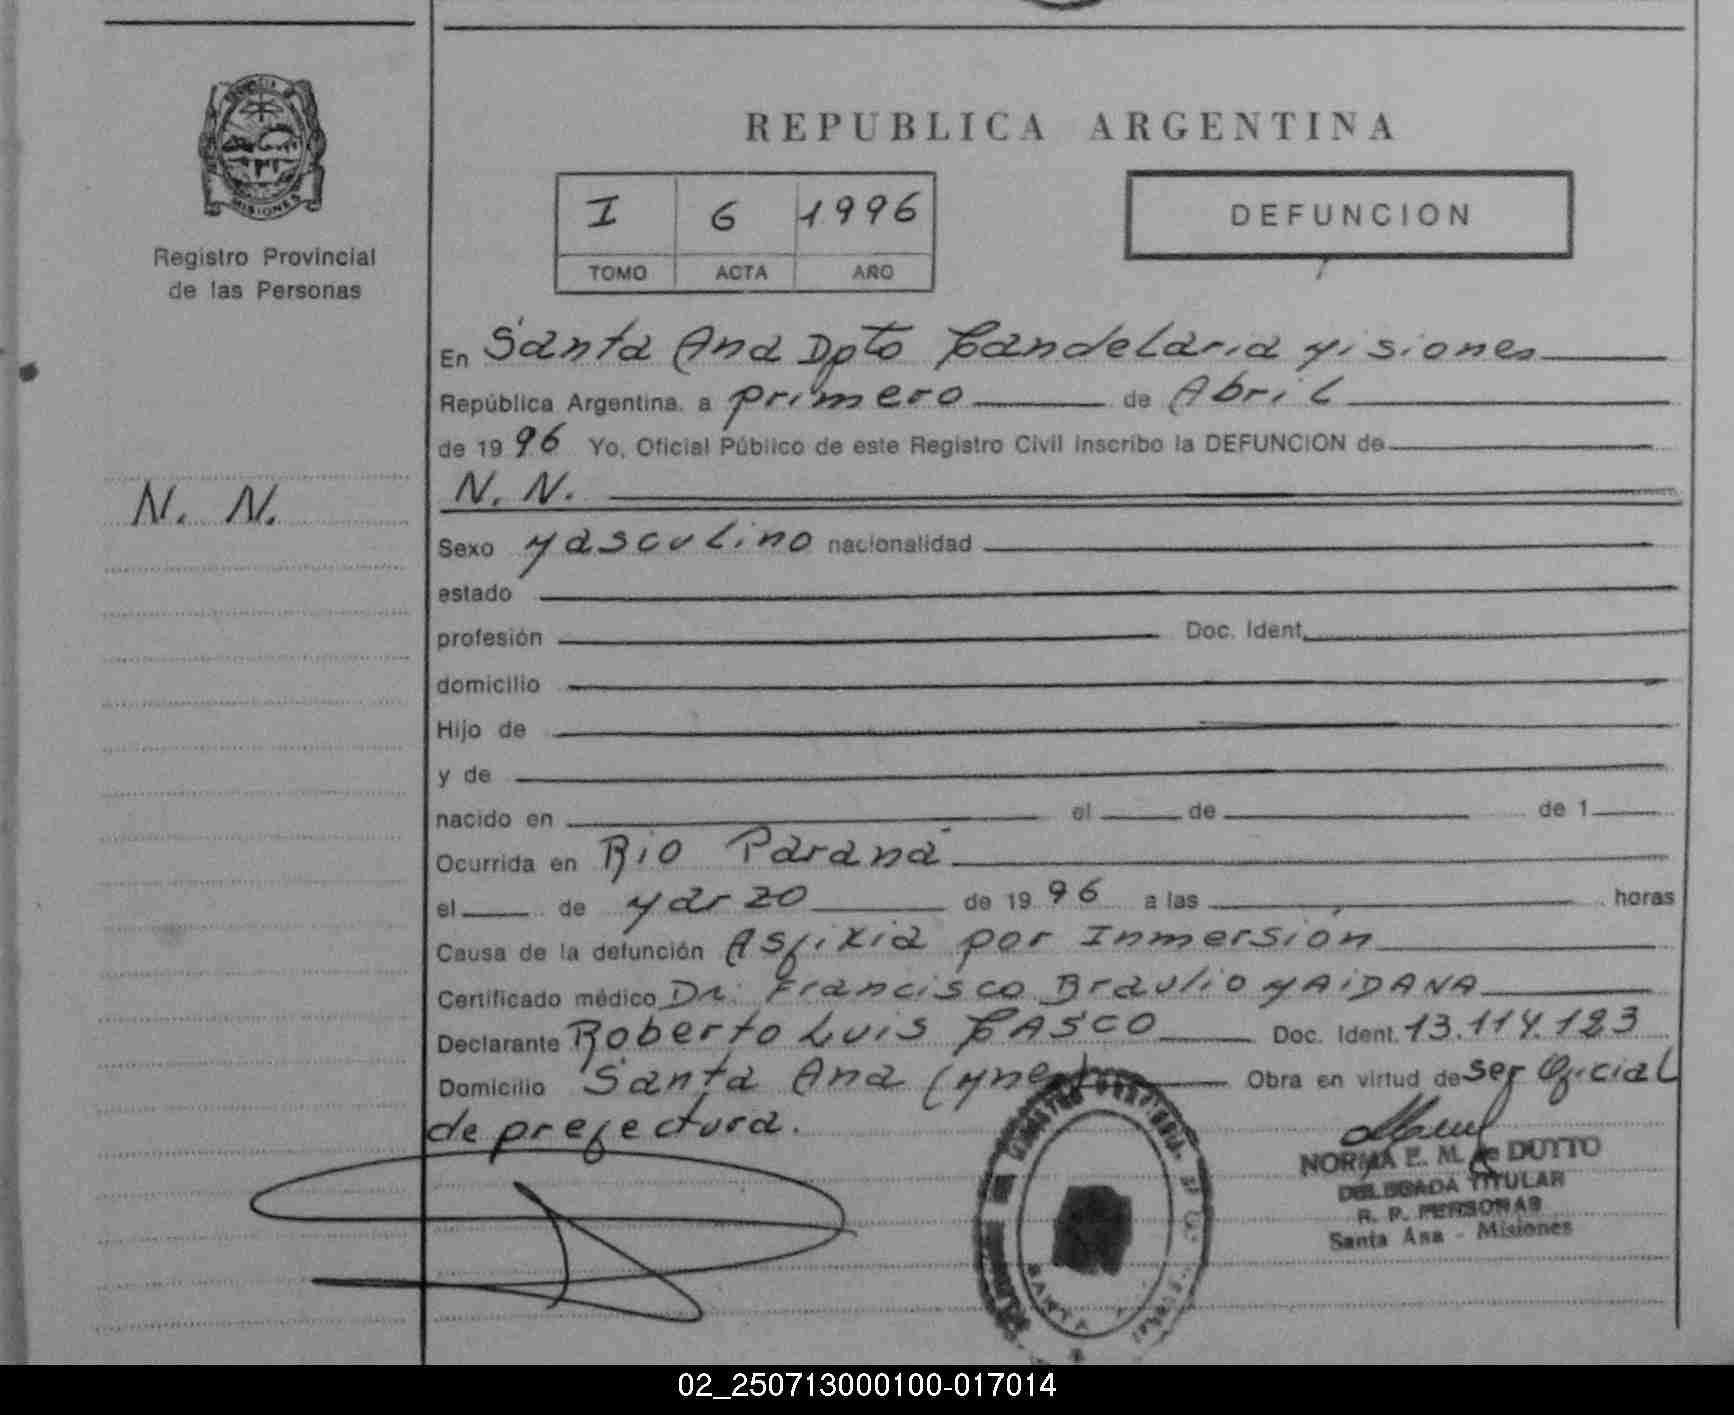 REPUBLICA ARGENTINA
MISIONES
Registro Provincial
de las Personas
I 6 1996
TOMO ACTA AÑO
DEFUNCION
En Santa Ana Dpto Candelaria Misiones
República Argentina, a primero de Abril
de 1996 Yo, Oficial Público de este Registro Civil inscribo la DEFUNCION de
N. N.
N. N.
Sexo Masculino nacionalidad
estado
profesión Doc. Ident.
domicilio
Hijo de
y de
nacido en el de de 1
Ocurrida en Rio Paraná
el de Marzo de 1996 a las horas
Causa de la defunción Asfixia por Inmersión
Certificado médico Dr. Francisco Braulio MAIDANA
Declarante Roberto Luis CASCO Doc. Ident. 13.114.123
Domicilio Santa Ana (Mnes) Obra en virtud de ser Oficial
de prefectura.
NORMA E. M. de DUTTO
DELEGADA TITULAR
R. P. PERSONAS
Santa Ana - Misiones
SANTA
02_250713000100-017014